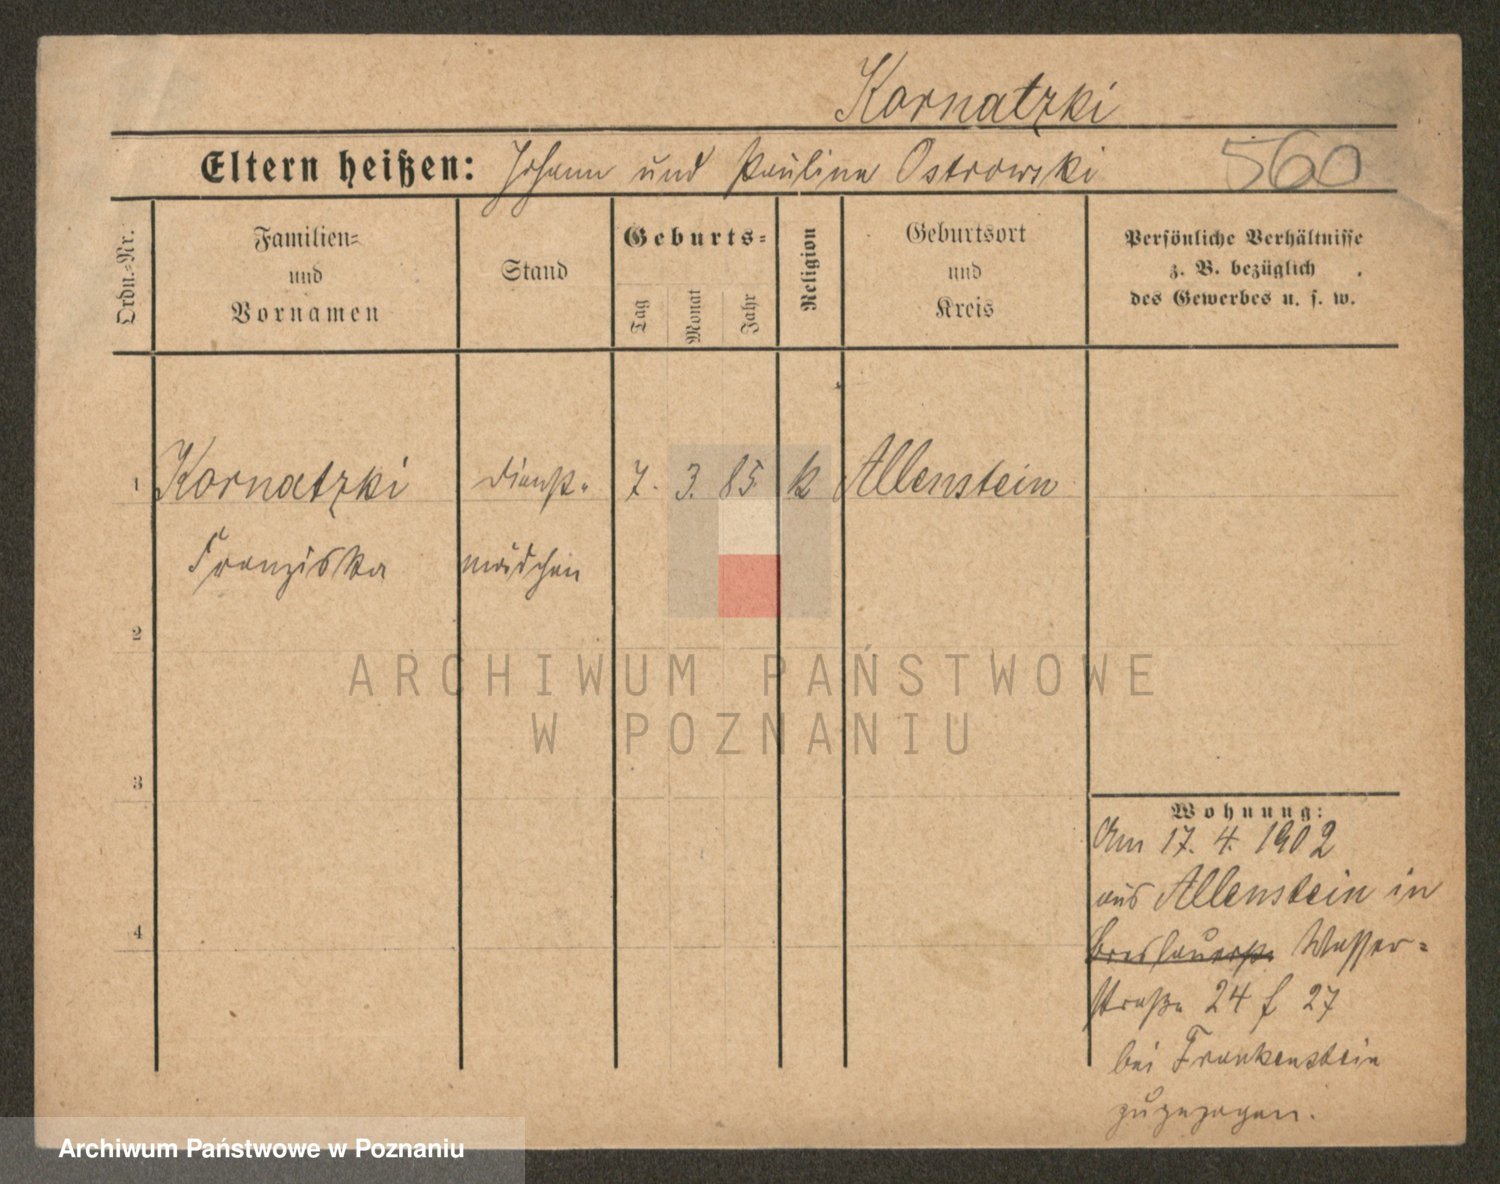 Kornatzki
Eltern heißen: Johann und Paulina Ostrowski 560
Ordn.-Nr.
Familien-
und
Vornamen
Stand
Geburts-
Tag
Monat
Jahr
Religion
Geburtsort
und
Kreis
Persönliche Verhältnisse
z. B. bezüglich
des Gewerbes u. s. w.
1 Kornatzki Dienst- 7. 3. 85 k Allenstein
Franziska mädchen
2
ARCHIWUM PAŃSTWOWE
W POZNANIU
3
Wohnung:
Am 17. 4. 1902
aus Allenstein in
Breslauerstr. Wasser-
straße 24 f 27
bei Frankenstein
zugezogen.
4
Archiwum Państwowe w Poznaniu